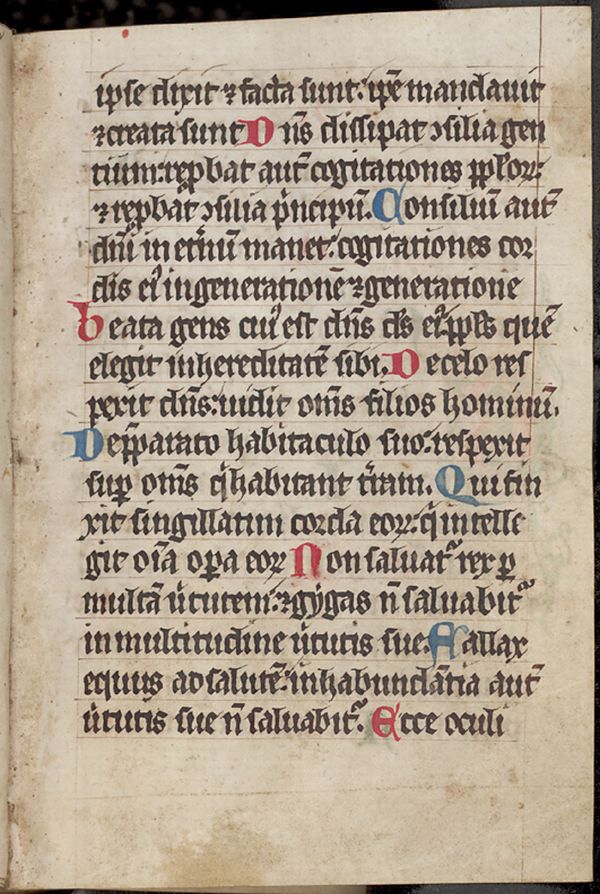 ipse dixit ⁊ facta sunt: ip̄e mandauit
⁊creata sunt D ns̄ dissipat ↄsilia gen
tium: rep̄bat aut̄ cogitationes pp̄loꝝ:
⁊ rep̄bat ↄsilia pͥncipū. Consiliū aut̄
dn̄i in et̄nū manet: cogitationes cor
dis eiꝰ in generationē ⁊generatione
beata gens cuiꝰ est dn̄s ds̄ eiꝰ pp̄ls quē
elegit in hereditatē sibi. De celo res
pexit dn̄s: uidit oms̄ filios hominū.
De p̄parato habitaculo suo: respexit
suꝑ oms̄ qͥ habitant t̄ram. Qui fin
xit singillatim corda eoꝝ: qͥ intelle
git oīa oꝑa eoꝝ Non saluat᷑ rex ꝑ
multā uͥtutem: ⁊gẏgas n̄ saluabit᷑
in multitudine uͥtutis sue. Fallax
equus ad salutē: in habundātia aut̄
uͥtutis sue n̄ saluabit᷑. Ecce oculi